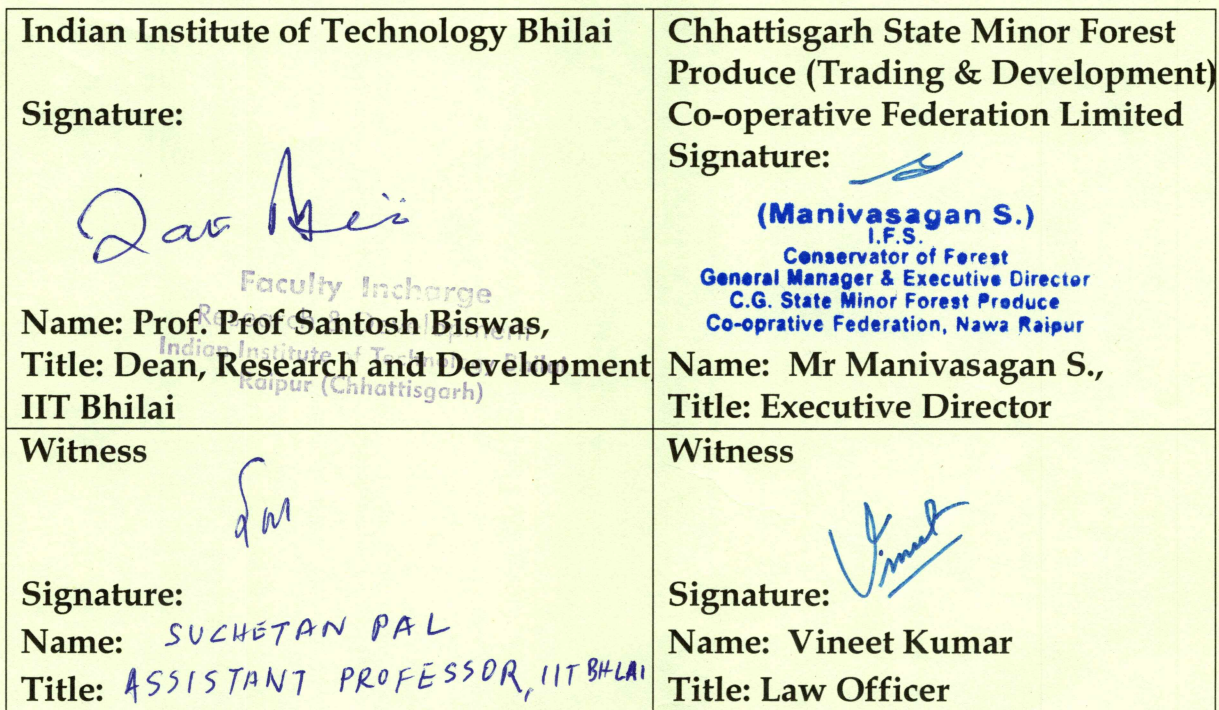 Indian Institute of Technology Bhilai
Signature:
Faculty Incharge
Research & Development
Indian Institute of Technology Bhilai
Raipur (Chhattisgarh)
Name: Prof. Prof Santosh Biswas,
Title: Dean, Research and Development
IIT Bhilai
Chhattisgarh State Minor Forest
Produce (Trading & Development)
Co-operative Federation Limited
Signature:
(Manivasagan S.)
I.F.S.
Conservator of Forest
General Manager & Executive Director
C.G. State Minor Forest Produce
Co-oprative Federation, Nawa Raipur
Name: Mr Manivasagan S.,
Title: Executive Director
Witness
Signature:
Name: SUCHETAN PAL
Title: ASSISTANT PROFESSOR, IIT BHLAI
Witness
Vineet
Signature:
Name: Vineet Kumar
Title: Law Officer